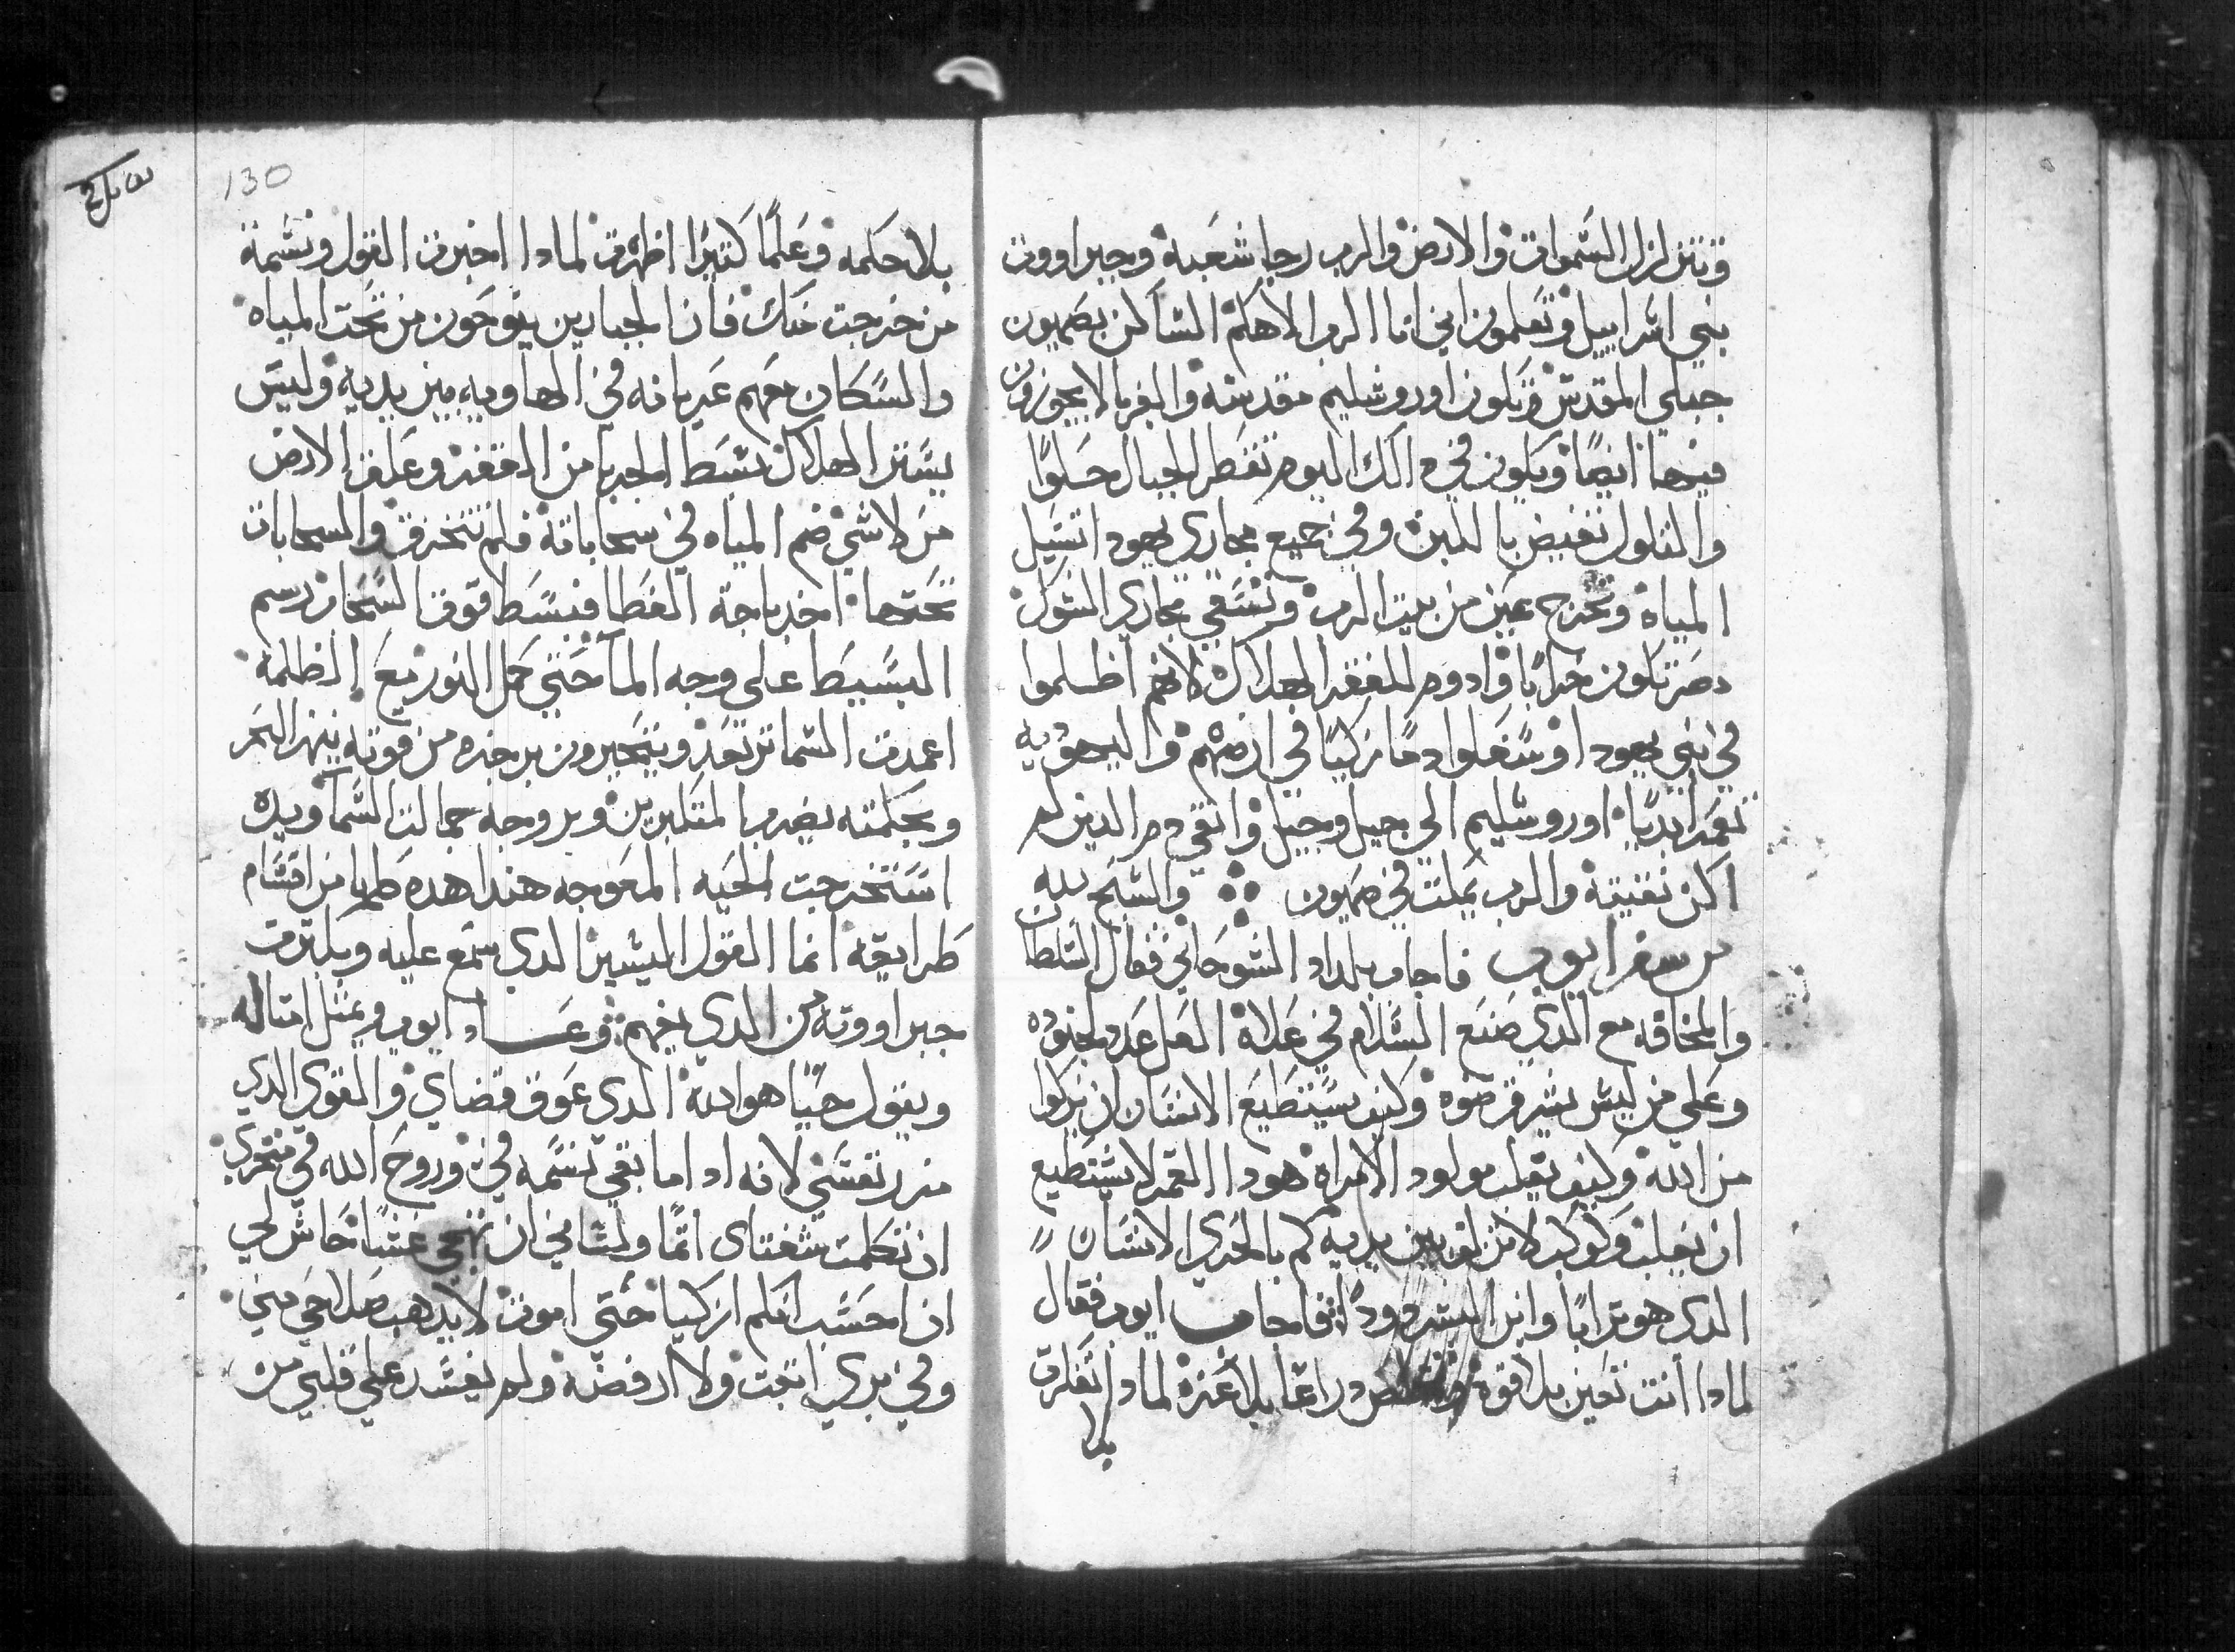 وتتزلزل السموات والارض والرب رجا شعبه وجبراووت
بني اسراييل وتعلمون اني انا الرب الاهكم الساكن بصهيون
جبلي المقدس وتكون اورشليم مقدسه والغربا لا يجوزون
فيها ايضا ويكون في دالك اليوم تقطر الجبال حلوا
والتلول تفيض باللبن وفي جميع مجاري يهودا تسيل
المياه وتخرج عين من بيت الرب وتسقي مجاري الشوك
مصر تكون خرابا وادوم للقفر الهلاك لانهم اظلموا
في بني يهودا وسفكوا دما زكيا في ارضهم واليهوديه
تعمر ابديا اورشليم الي جيل وجيل وانتقم دم الدين لم
اكن نقيته والرب يملك في صهيون والسبح لله
من سفر ايوب فاجاب بلداد الشوحاني فقال السلطان
والمخافه مع الدي صنع السلام في علاه العل عدد لجنوده
وعلي من ليس يشرق ضوه وكيف يستطيع الانسان ان يزكوا
من الله وكيف يقلب مولود الامراه هودا القمر لا يستطيع
ان يغلب وكوكب لا تزكو بين يديه كم بالحري الانسان
الدي هو ترابا وابن البشر دودا فاجاب ايوب فقال
لمادا انت تعين بلا قوه دراعا بلا عزه لمادا تفكرت
بلا
130
بلا حكمه وعلما كتيرا اظهرت لمادا اخبرت القول ونسمة
من خرجت منك فان الجبارين ينوحون من تحت المياه
والسكان معهم عريانه في الهاويه بين يديه وليس
يستر الهلاك بسط الجربا من الدقفر وعلق الارض
من لا شي ضم المياه في سحاباته فلم تتخرق والسحابات
تحتها اخد باجة الغطا فبسط فوق السحاب رسم
البسيط علي وجه الما حتي كل النور مع الظلمه
اعمدت السما ترتعد ويتحيرون بزجزه من قوته ينهر البحر
وبحكمته يضرب المتكبرين وبروحه جمالت السما ويده
استخرجت الحيه المعوجه هندا هده كلها من اقسام
طرايقه انما القول اليسير الدي سمع عليه وبكترت
جبراووته من الدي يفهم وعاد ايوب ويمتل امتاله
ويقول حيا هو الله الدي عوق قضاي والقوي الدي
مرر نفسي لانه ادا ما بقي نسمه في وروح الله في منخري
ان تكلمت شفتاي اتما ولساني ان تهجي غشا حاش لي
ان احسب انكم ازكيا حتي اموت لا يدهب صلاحي مني
وفي بري اتبت ولا ارفضه ولم يفسد علي قلبي من